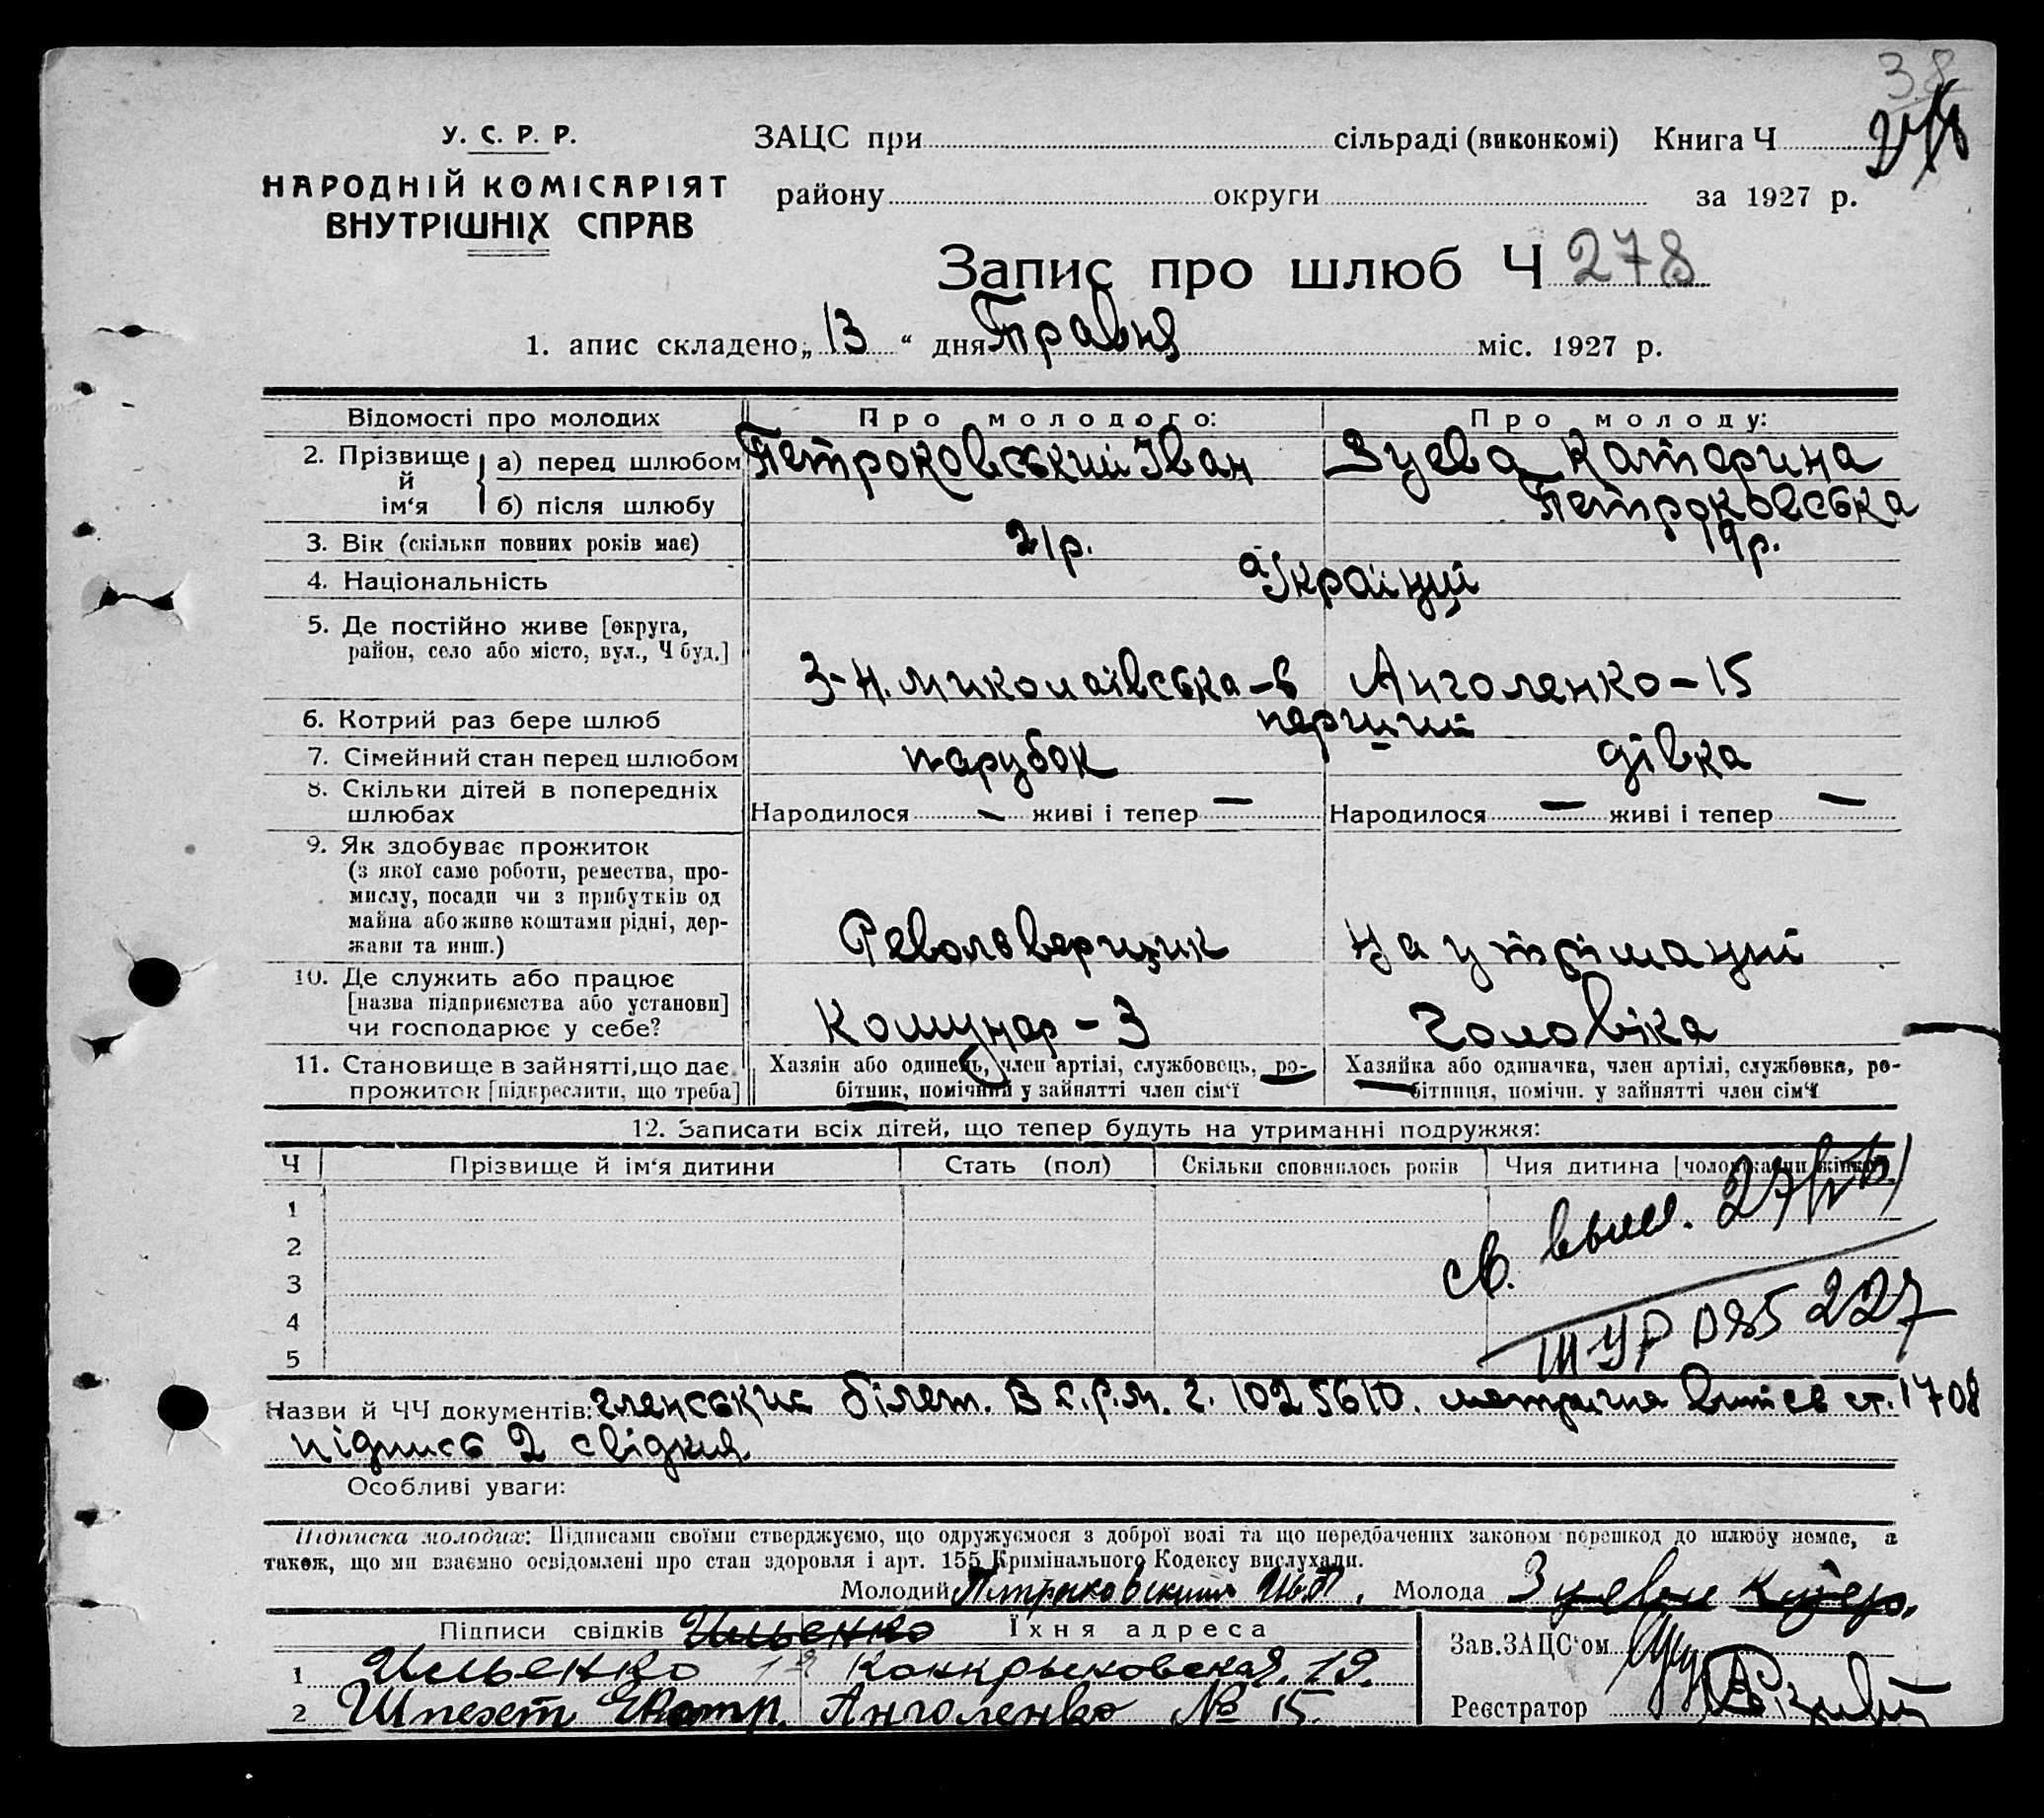 38
У. С. Р. Р.
НАРОДНІЙ КОМІСАРІЯТ
ВНУТРІШНІХ СПРАВ
ЗАЦС при сільраді (виконкомі) Книга Ч
району округи за 1927 р.
Запис про шлюб Ч 278
1. апис складено „ 13 “ дня Травня міс. 1927 р.
Відомості про молодих Про молодого: Про молоду:
2. Прізвище й ім‘я а) перед шлюбом Петроковський Іван Зуева Катерина
б) після шлюбу Петроковська
3. Вік (скільки повних років має) 21р. 19р.
4. Національність Українці
5. Де постійно живе [округа,
район, село або місто, вул., Ч буд.]
3-Н. Миколаївська-6 Анголенко-15
6. Котрий раз бере шлюб перший
7. Сімейний стан перед шлюбом парубок дівка
8. Скільки дітей в попередніх
шлюбах Народилося — живі і тепер — Народилося — живі і тепер —
9. Як здобуває прожиток
(з якої саме роботи, ремества, про-
мислу, посади чи з прибутків од
майна або живе коштами рідні, дер-
жави та инш.) Револьверщик На утріманні
10. Де служить або працює
[назва підприємства або установи]
чи господарює у себе? Комунар-3 чоловіка
11. Становище в зайнятті, що дає Хазяін або одинець, член артілі, службовець, ро- Хазяйка або одиначка, член артілі, службовка, ро-
прожиток [підкреслити, що треба] бітник, помічний у зайнятті член сім‘ї бітниця, помічн. у зайнятті член сім‘ї
12. Записати всіх дітей, що тепер будуть на утриманні подружжя:
Ч Прізвище й ім‘я дитини Стать (пол) Скільки сповнилось років Чия дитина
1
2
3
4
5
св. выш.
ШУР 085227
Назви й ЧЧ документів: членський білет. В.С.Р.М. г. 1025610. метрична ст. 1708
підпись 2 свідків
Особливі уваги:
Підписка молодих: Підписами своїми стверджуємо, що одружуємося з доброї волі та що передбачених законом перешкод до шлюбу немає, а
також, що ми взаємно освідомлені про стан здоровля і арт. 155 Кримінального Кодексу вислухали.
Молодий Петраковский Молода Зуева Катер.
Підписи свідків Ильенко Їхня адреса
1 Ильенко 19.
2 Шпехт Екатр. Анголенко № 15.
Зав. ЗАЦС‘ом
Реєстратор